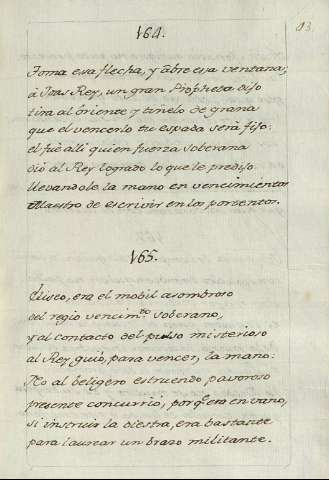 83.
164.
Toma essa flecha, y abre essa ventana;
à Joas Rey, un gran Propheta dijo
tira al òriente y tiñelo de grana
que el vencerlo tu espada serà fijo:
el fuè alli quien fuerza soberana
diò al Rey logrado lo que le predijo
llevandole la mano en vencimientos
Maestro de escrivir en los portentos.
165.
Eliseo, era el mobil asombroso
del regio vencim.to soberano,
y al contacto del pulso misterioso
al Rey guiò, para vencer, la mano:
No al beligero estruendo pavoroso
presente concurriò, porq.e era en vano,
si instruir la diestra, era bastante
para laurear un brazo militante.